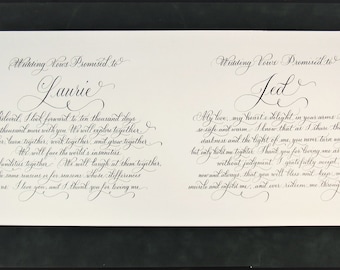 Wedding Vows Promised to
Laurie
Beloved, I look forward to ten thousand days
thousand more with you. We will explore together,
love together, work together, and grow together.
We will face the world's insanities
together. We will laugh at them together,
same reasons or for reasons whose differences
I love you, and I thank you for loving me.
Wedding Vows Promised to
Jed
My love, my heart's delight, in your arms
safe and warm. I know that as I share the
darkness and the light of me, you never turn
but only hold me tighter. Thank you for loving me
without judgment. I gratefully accept
now and always, that you will bless and keep me
and uphold me, and ever redeem me through